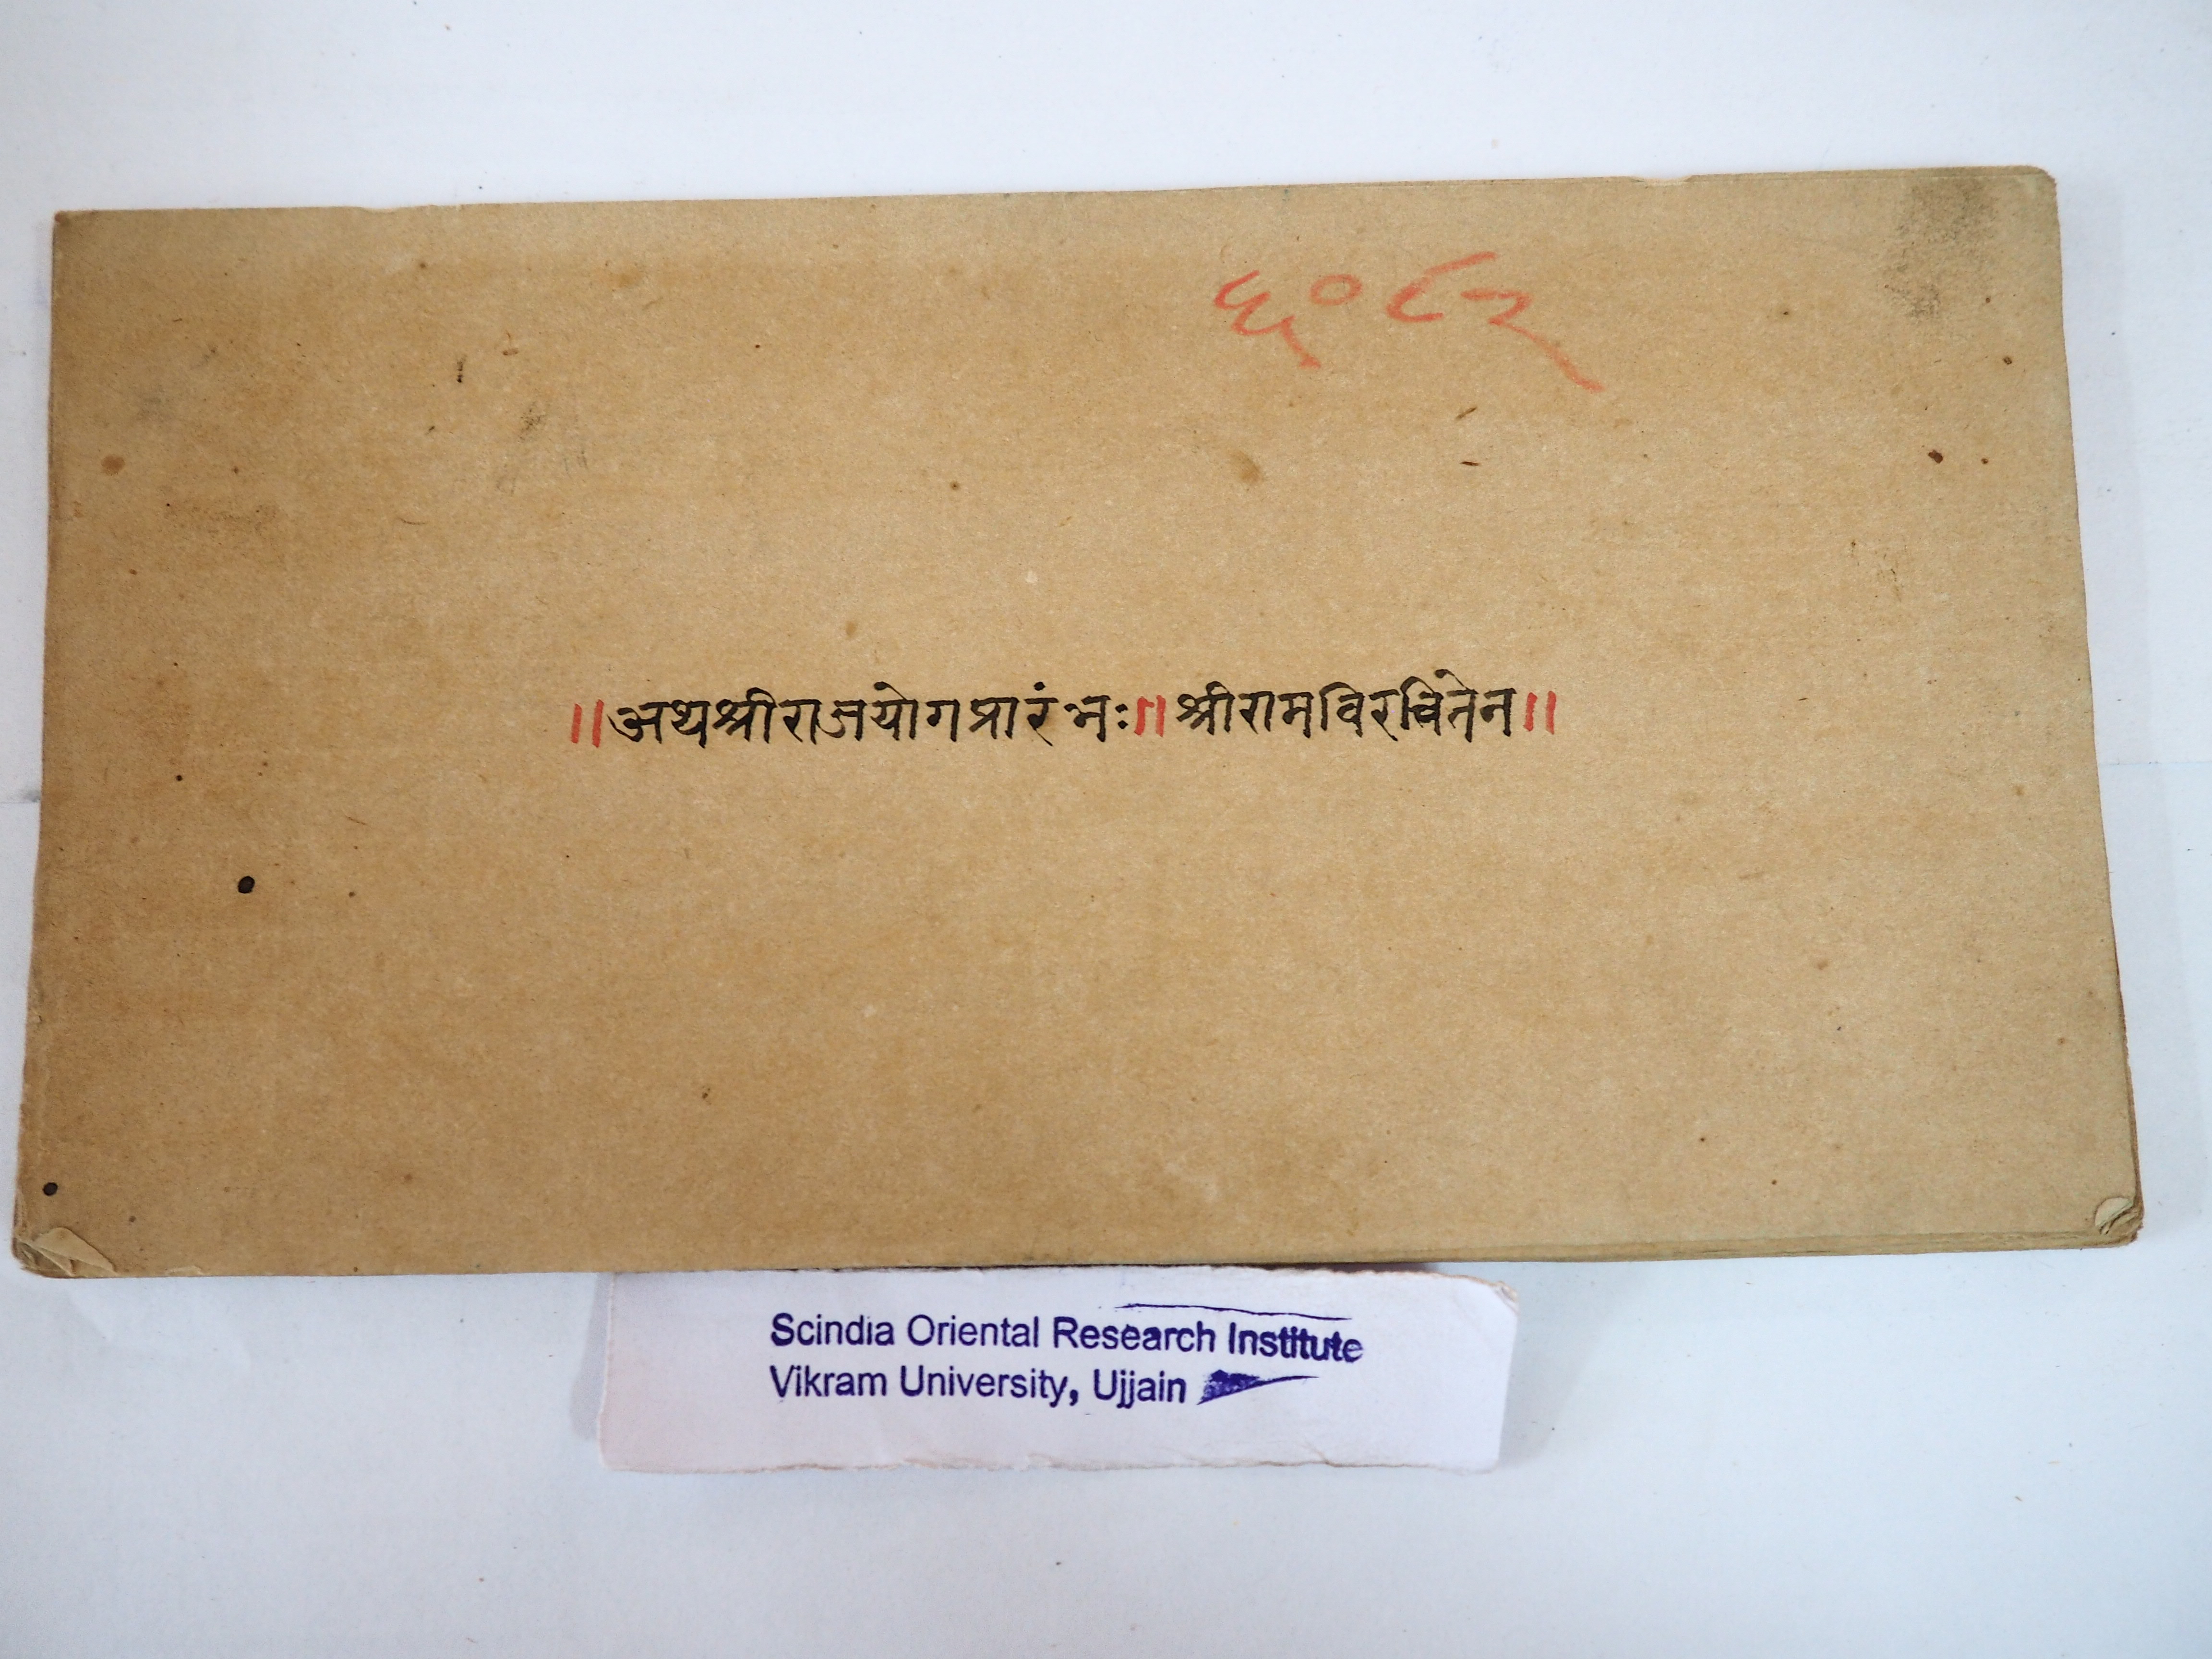 ६०८२
॥अथश्रीराजयोगप्रारंभः॥श्रीरामविरचितेन॥
Scindia Oriental Research Institute
Vikram University, Ujjain